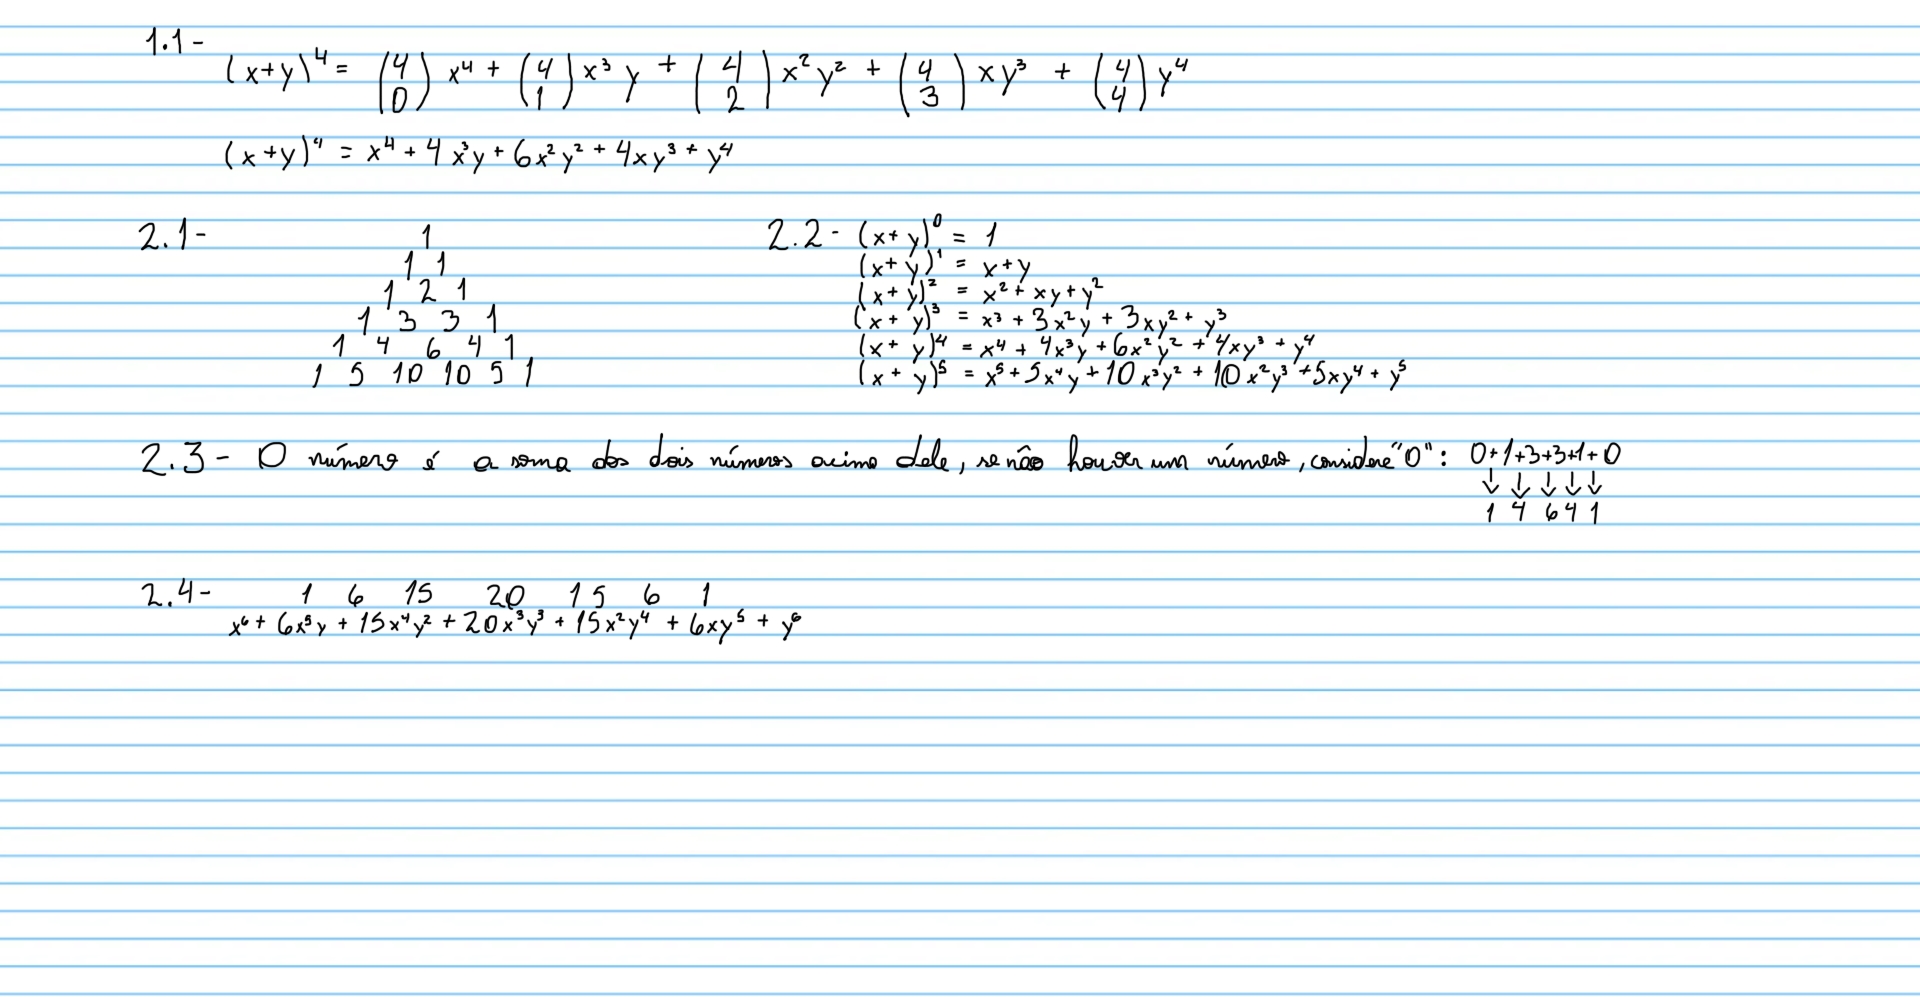 1.1-
(x+y)⁴ = (4 0) x⁴ + (4 1) x³y + (4 2) x²y² + (4 3) xy³ + (4 4) y⁴
(x+y)⁴ = x⁴ + 4x³y + 6x²y² + 4xy³ + y⁴
2.1-
1
1 1
1 2 1
1 3 3 1
1 4 6 4 1
1 5 10 10 5 1
2.2- (x+y)⁰ = 1
(x+y)¹ = x+y
(x+y)² = x² + xy + y²
(x+y)³ = x³ + 3x²y + 3xy² + y³
(x+y)⁴ = x⁴ + 4x³y + 6x²y² + 4xy³ + y⁴
(x+y)⁵ = x⁵ + 5x⁴y + 10x³y² + 10x²y³ + 5xy⁴ + y⁵
2.3- O número é a soma dos dois números acima dele, se não houver um número, considere "0": 0+1+3+3+1+0
↓ ↓ ↓ ↓ ↓
1 4 6 4 1
2.4- 1 6 15 20 15 6 1
x⁶ + 6x⁵y + 15x⁴y² + 20x³y³ + 15x²y⁴ + 6xy⁵ + y⁶